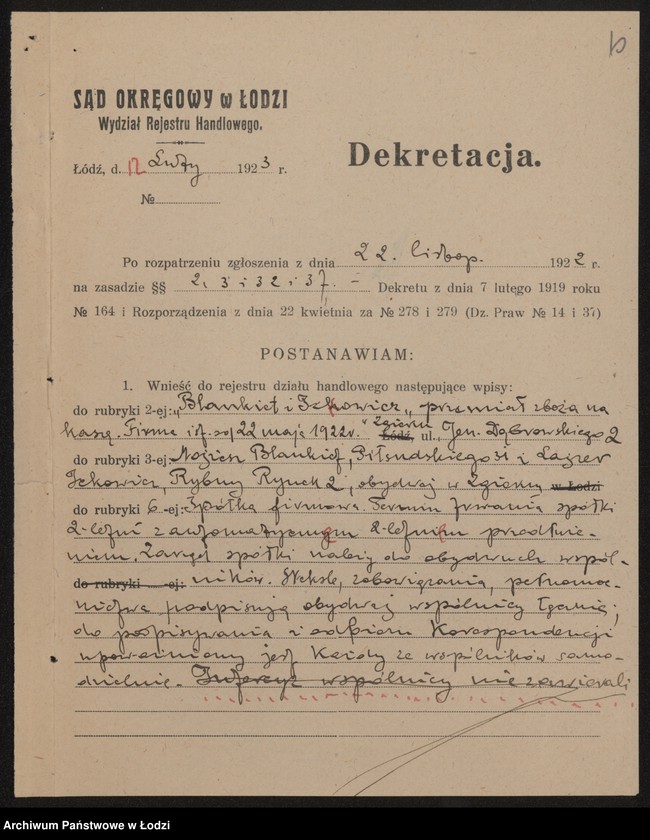 SĄD OKRĘGOWY w ŁODZI
Wydział Rejestru Handlowego.
Łódź, d. 12 Luty 1923 r.
№
Dekretacja.
Po rozpatrzeniu zgłoszenia z dnia 22. listop. 1922 r.
na zasadzie §§ 2, 3 i 32 i 37. — Dekretu z dnia 7 lutego 1919 roku
№ 164 i Rozporządzenia z dnia 22 kwietnia za № 278 i 279 (Dz. Praw № 14 i 37)
POSTANAWIAM:
1. Wnieść do rejestru działu handlowego następujące wpisy:
do rubryki 2-ej: „Blankiet i Ickowicz„ - przemiał zboża na
kaszę. Firma istn. od 22 maja 1922 r. w Zgierzu Łódź, ul. Jen. Dąbrowskiego 2
do rubryki 3-ej: Blankiet, Piłsudskiego 31 i Lajzer
Ickowicz, Rybny Rynek 2, obydwaj w Zgierzu w Łodzi
do rubryki 6-ej: Spółka firmowa. Termin trwania spółki
2-letni z automatycznem 2-letniem przedłuże-
niem. Zarząd spółki należy do obydwuch wspól-
do rubryki -ej: ników. Weksle, zobowiązania, pełnomoc-
nictwa podpisują obydwaj wspólnicy łącznie;
do podpisywania i odbioru korespondencji
upoważniony jest każdy ze wspólników samo-
dzielnie. Intercyz wspólnicy nie zawierali
Archiwum Państwowe w Łodzi